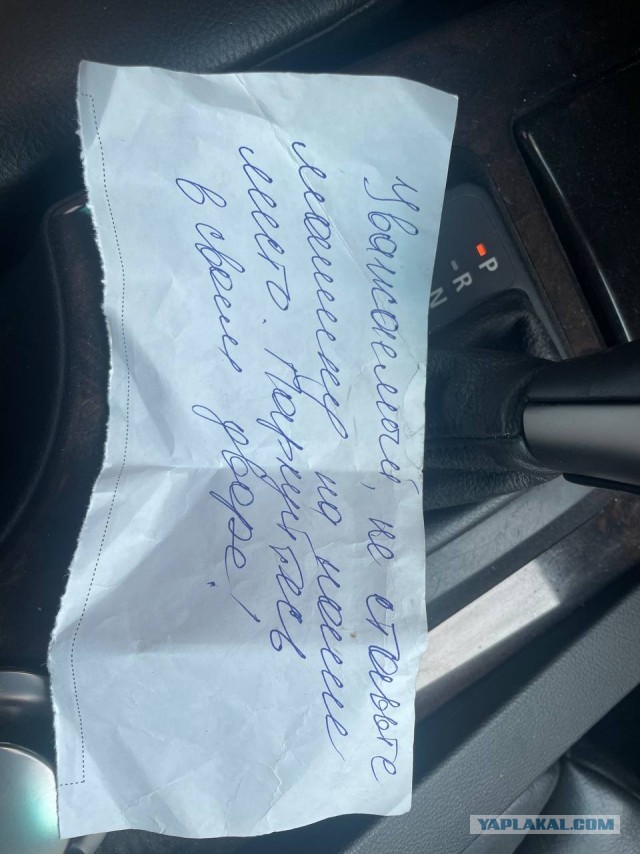 Уважаемый, не ставьте
машину на наше
место. Паркуйтесь
в своём дворе!
P
R
N
YAPLAKAL.COM